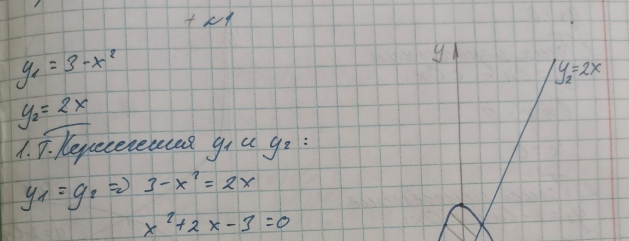 N1
y₁ = 3 - x²
y₂ = 2x
1. Т. Пересечения y₁ и y₂ :
y₁ = y₂ => 3 - x² = 2x
x² + 2x - 3 = 0
y
y₂ = 2x